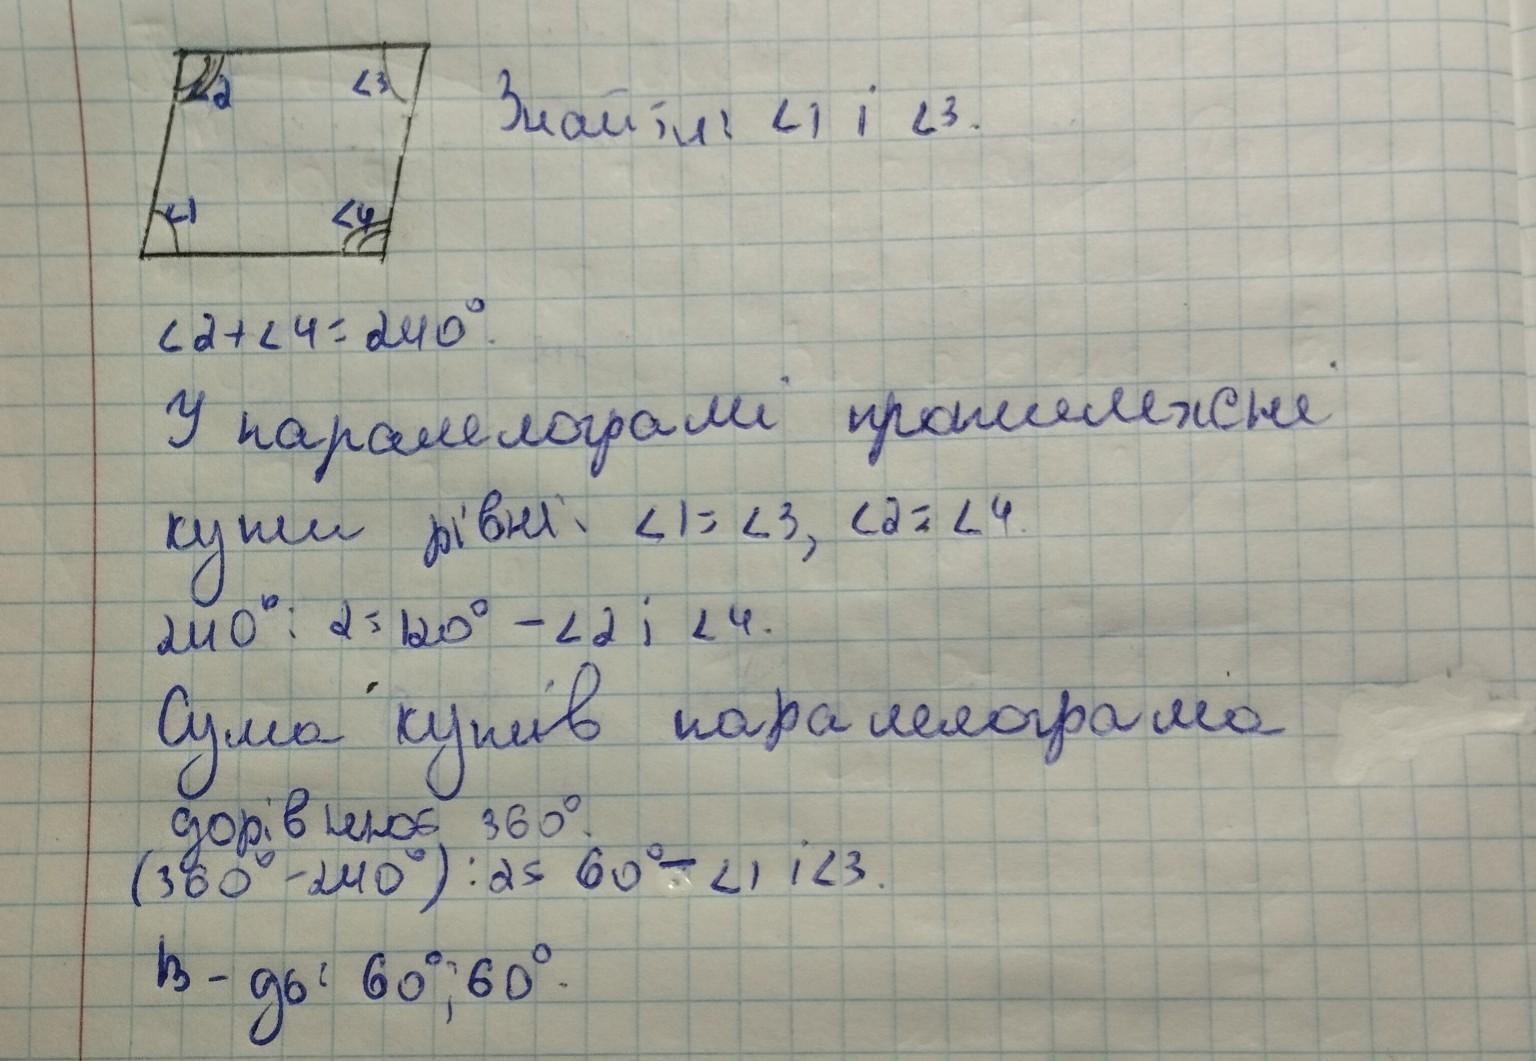 ∠2
∠3
Знайти: ∠1 і ∠3.
∠1
∠4
∠2+∠4=240°.
У паралелограмі протилежні
кути рівні. ∠1=∠3, ∠2=∠4.
240°:2=120° – ∠2 і ∠4.
Сума кутів паралелограма
дорівнює 360°.
(360°-240°):2=60° – ∠1 і ∠3.
В-дь: 60°;60°.